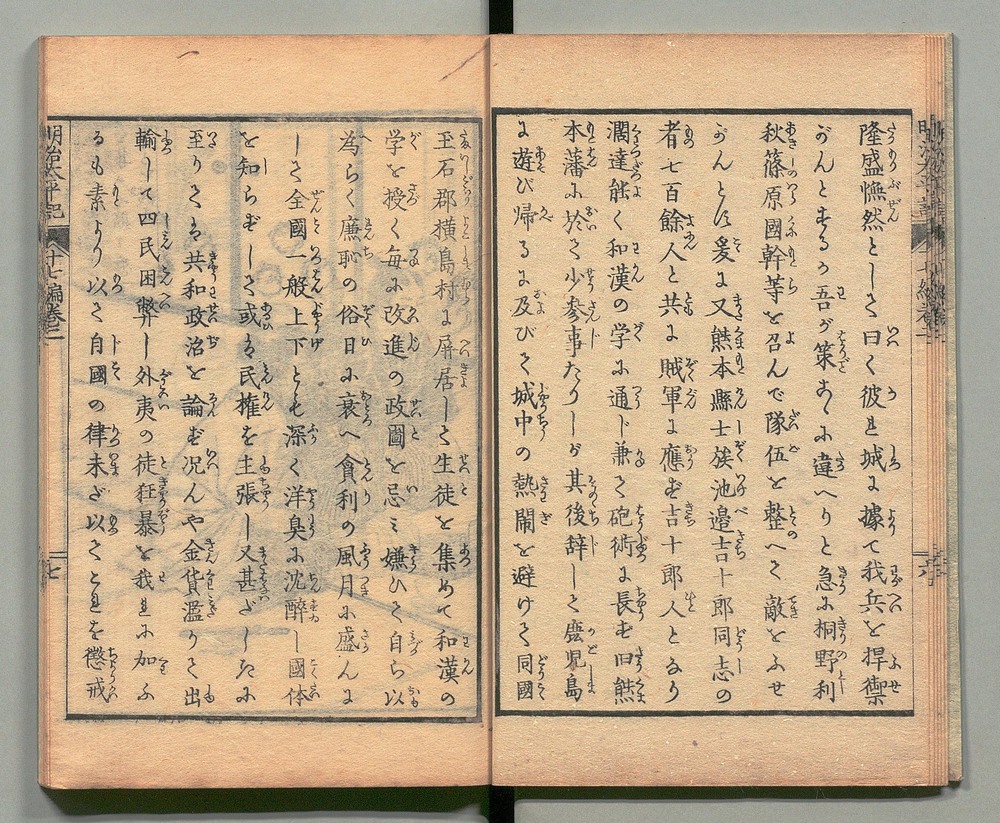 隆盛憮然として曰く彼れ城に據て我兵を捍禦
がんとするか吾が策あゝ違へりと急ふ桐野利
秋篠原國幹等を召んで隊伍を整へて敵をふせ
がんとに爰に又熊本縣士族池邉吉十郎同志の
者七百餘人と共に賊軍に應ず吉十郎人となり
濶達能く和漢の学に通じ兼て砲術に長ず旧熊
本藩に於て少参事たりしが其後辞して麑児島
に遊び帰るに及びて城中の熱閙を避けて同國
玉石郡横島村に屏居して生徒を集めて和漢の
学を授く毎に改進の政圖を忌ミ嫌ひて自ら以
為らく廉恥の俗日に衰へ貪利の風月に盛んに
して全國一般上下とも深く洋臭に沈醉し國体
を知らずして或は民権を主張し又甚ざしたに
至りては共和政治を論ず况んや金貨濫りに出
輸して四民困弊し外夷の徒狂暴を我れに加ふ
るも素より以て自國の律未ざ以てこれを懲戒
明治太平記
十七編巻二
七